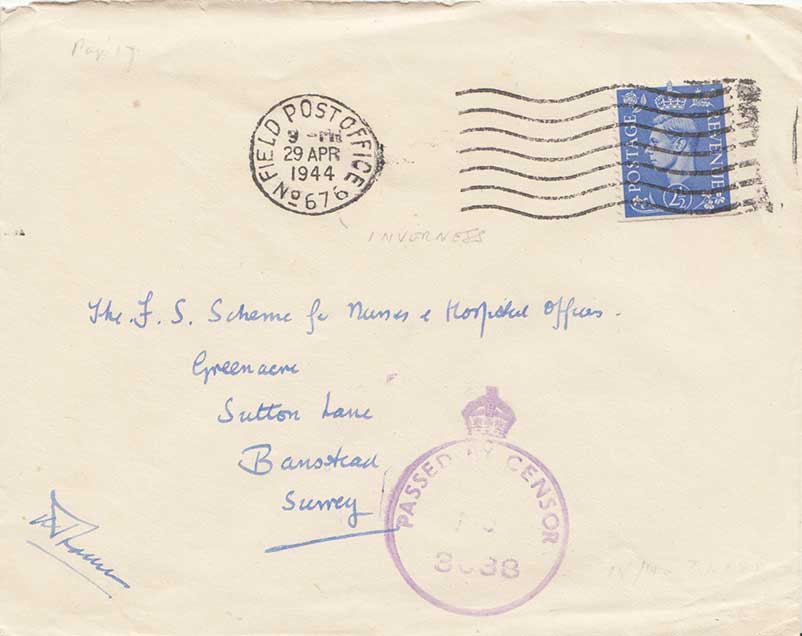 Page 17
FIELD POST OFFICE
9 - PM
29 APR
1944
No 676
POSTAGE REVENUE
2½
INVERNESS
The F. S. Scheme for Nurses & Hospital Offices.
Greenacre
Sutton Lane
Banstead
Surrey
PASSED BY CENSOR
No